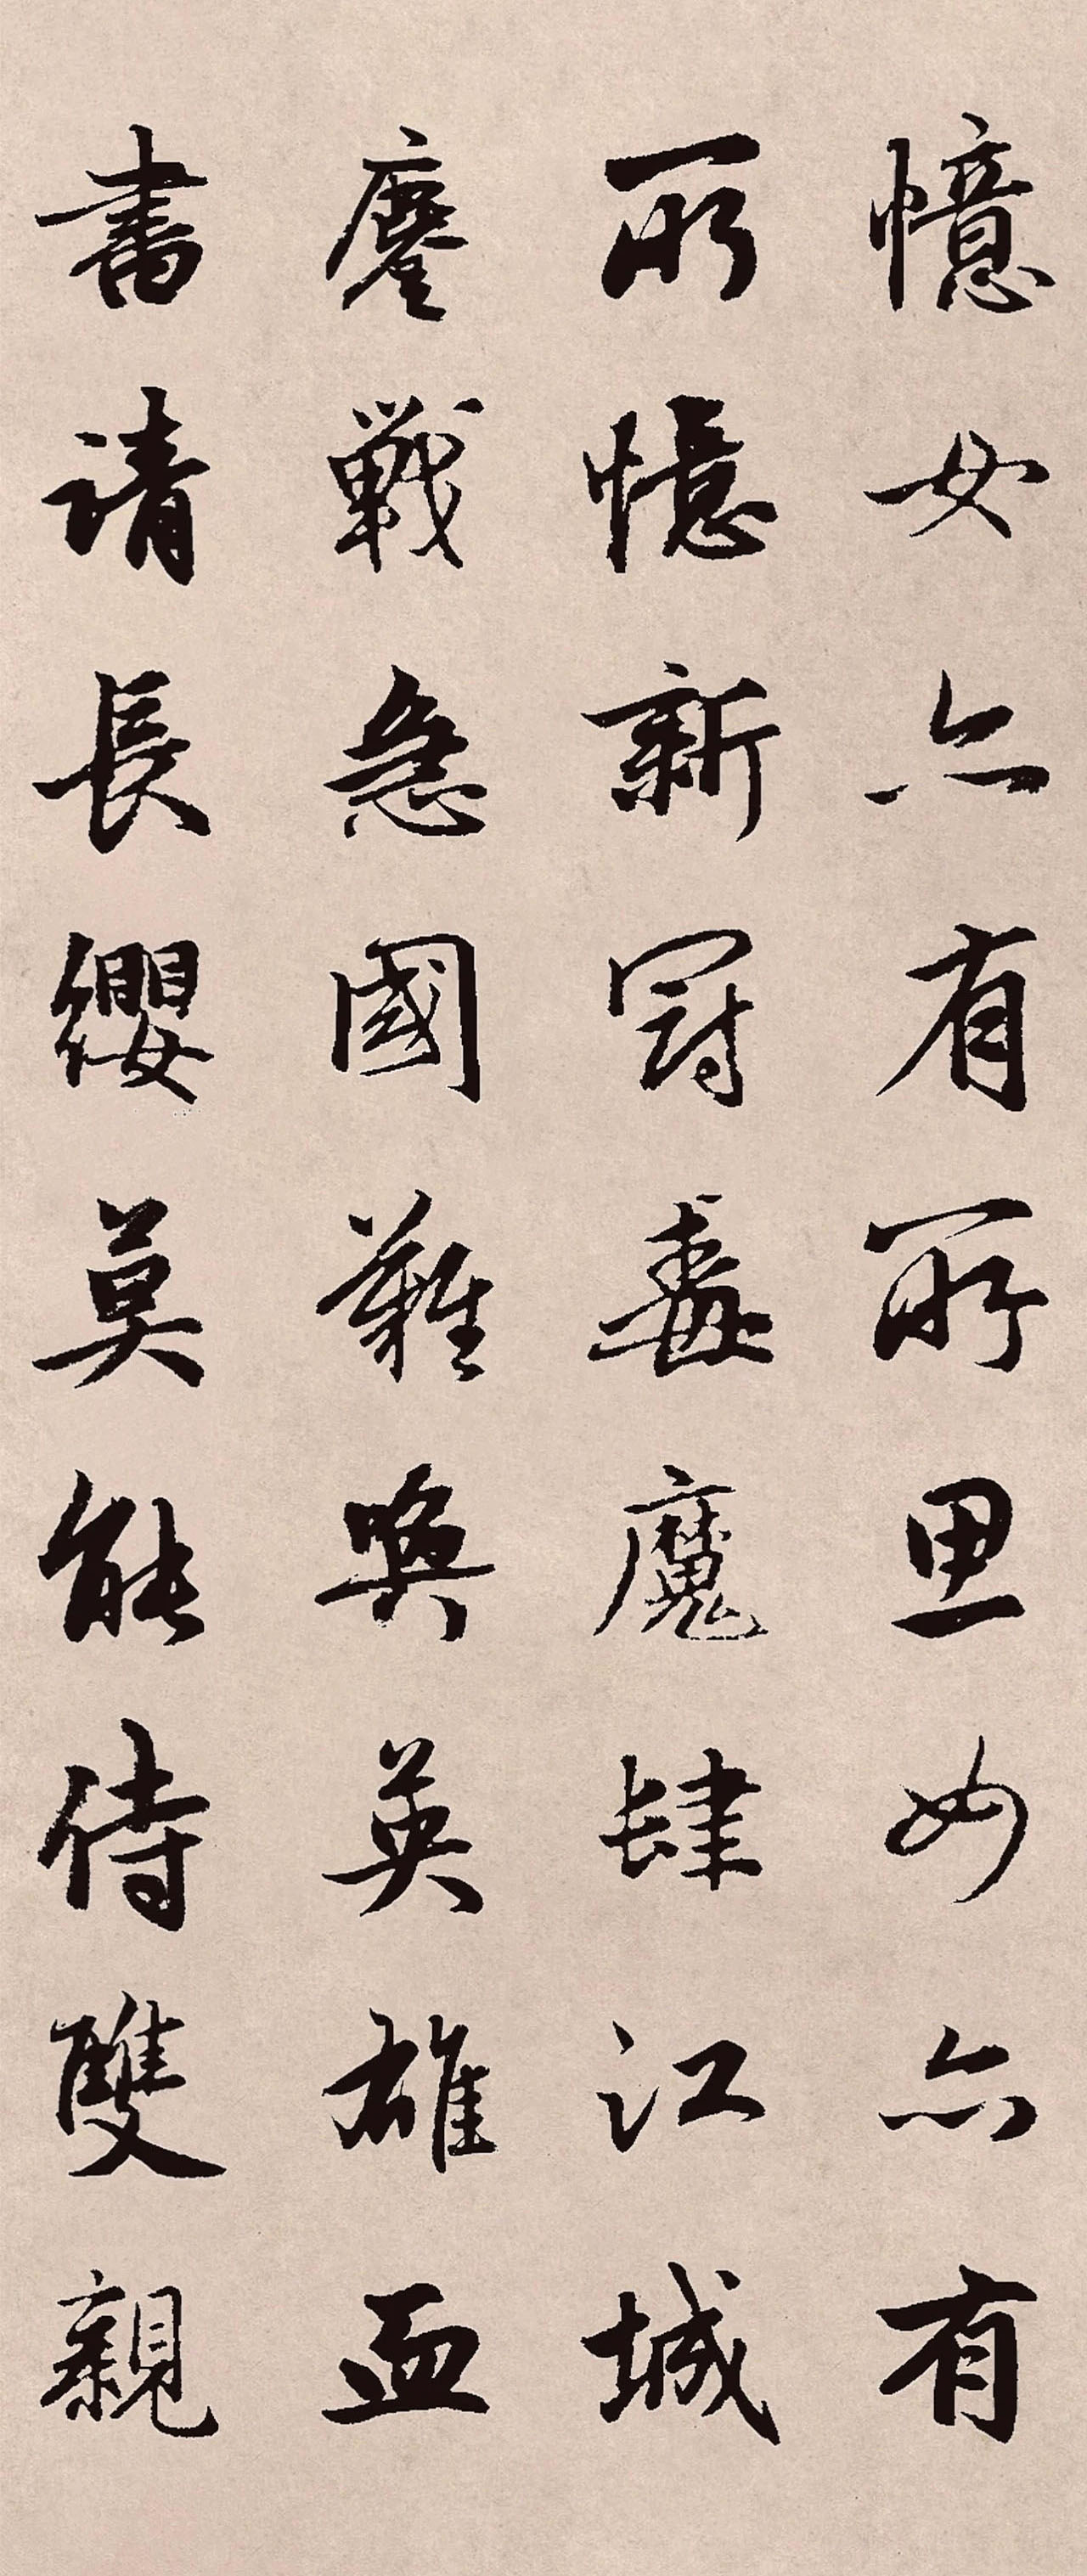 憶女亦有所思女亦有
所憶新冠毒魔肆江城
鏖戰急國難興英雄血
書請長纓莫能侍雙親